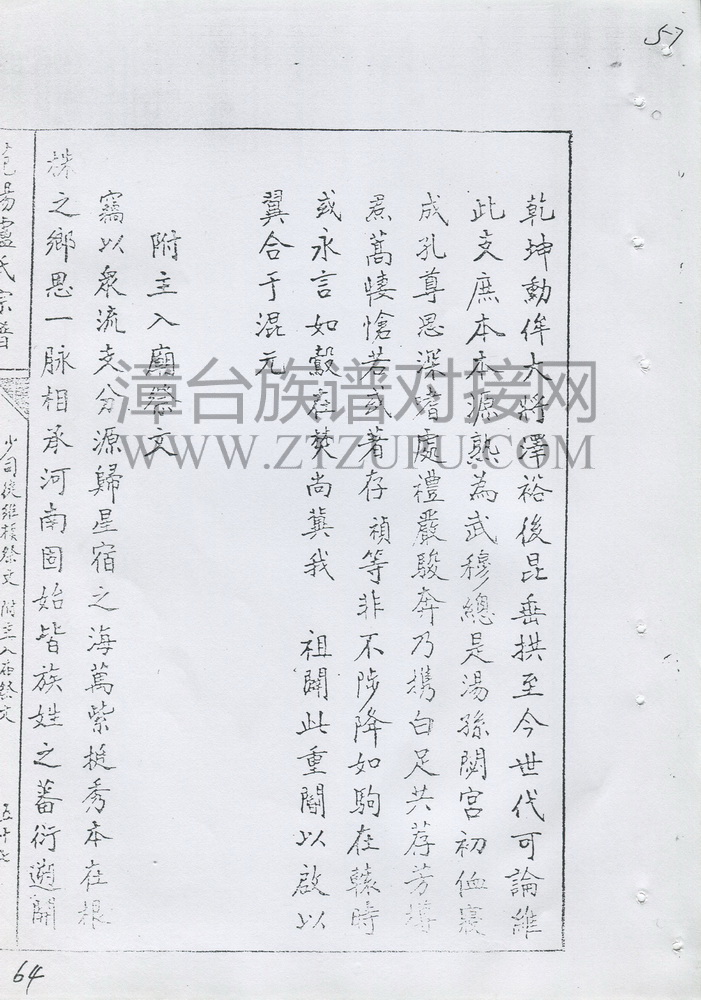 57
乾坤動侔大將澤裕後昆垂拱至今世代可論維
此支庶本本源熟為武穆總是湯孫閟宮初侐寢
成孔尊思深嗜處禮嚴駿奔乃携白足共荐芳樽
焄蒿悽愴若或著存禎等非不陟降如駒在轅時
或永言如鷇在焚尚冀我 祖闢此重閽以啟以
翼合于混元
附主入廟祭文
竊以眾流支分源歸星宿之海萬紫挺秀本在根
株之鄉思一脉相承河南固始皆族姓之蕃衍遡開
范陽盧氏宗普
少司徒維禎祭文 附主入廟祭文
五十七
64
漳台族谱对接网
WWW.ZTZUPU.COM